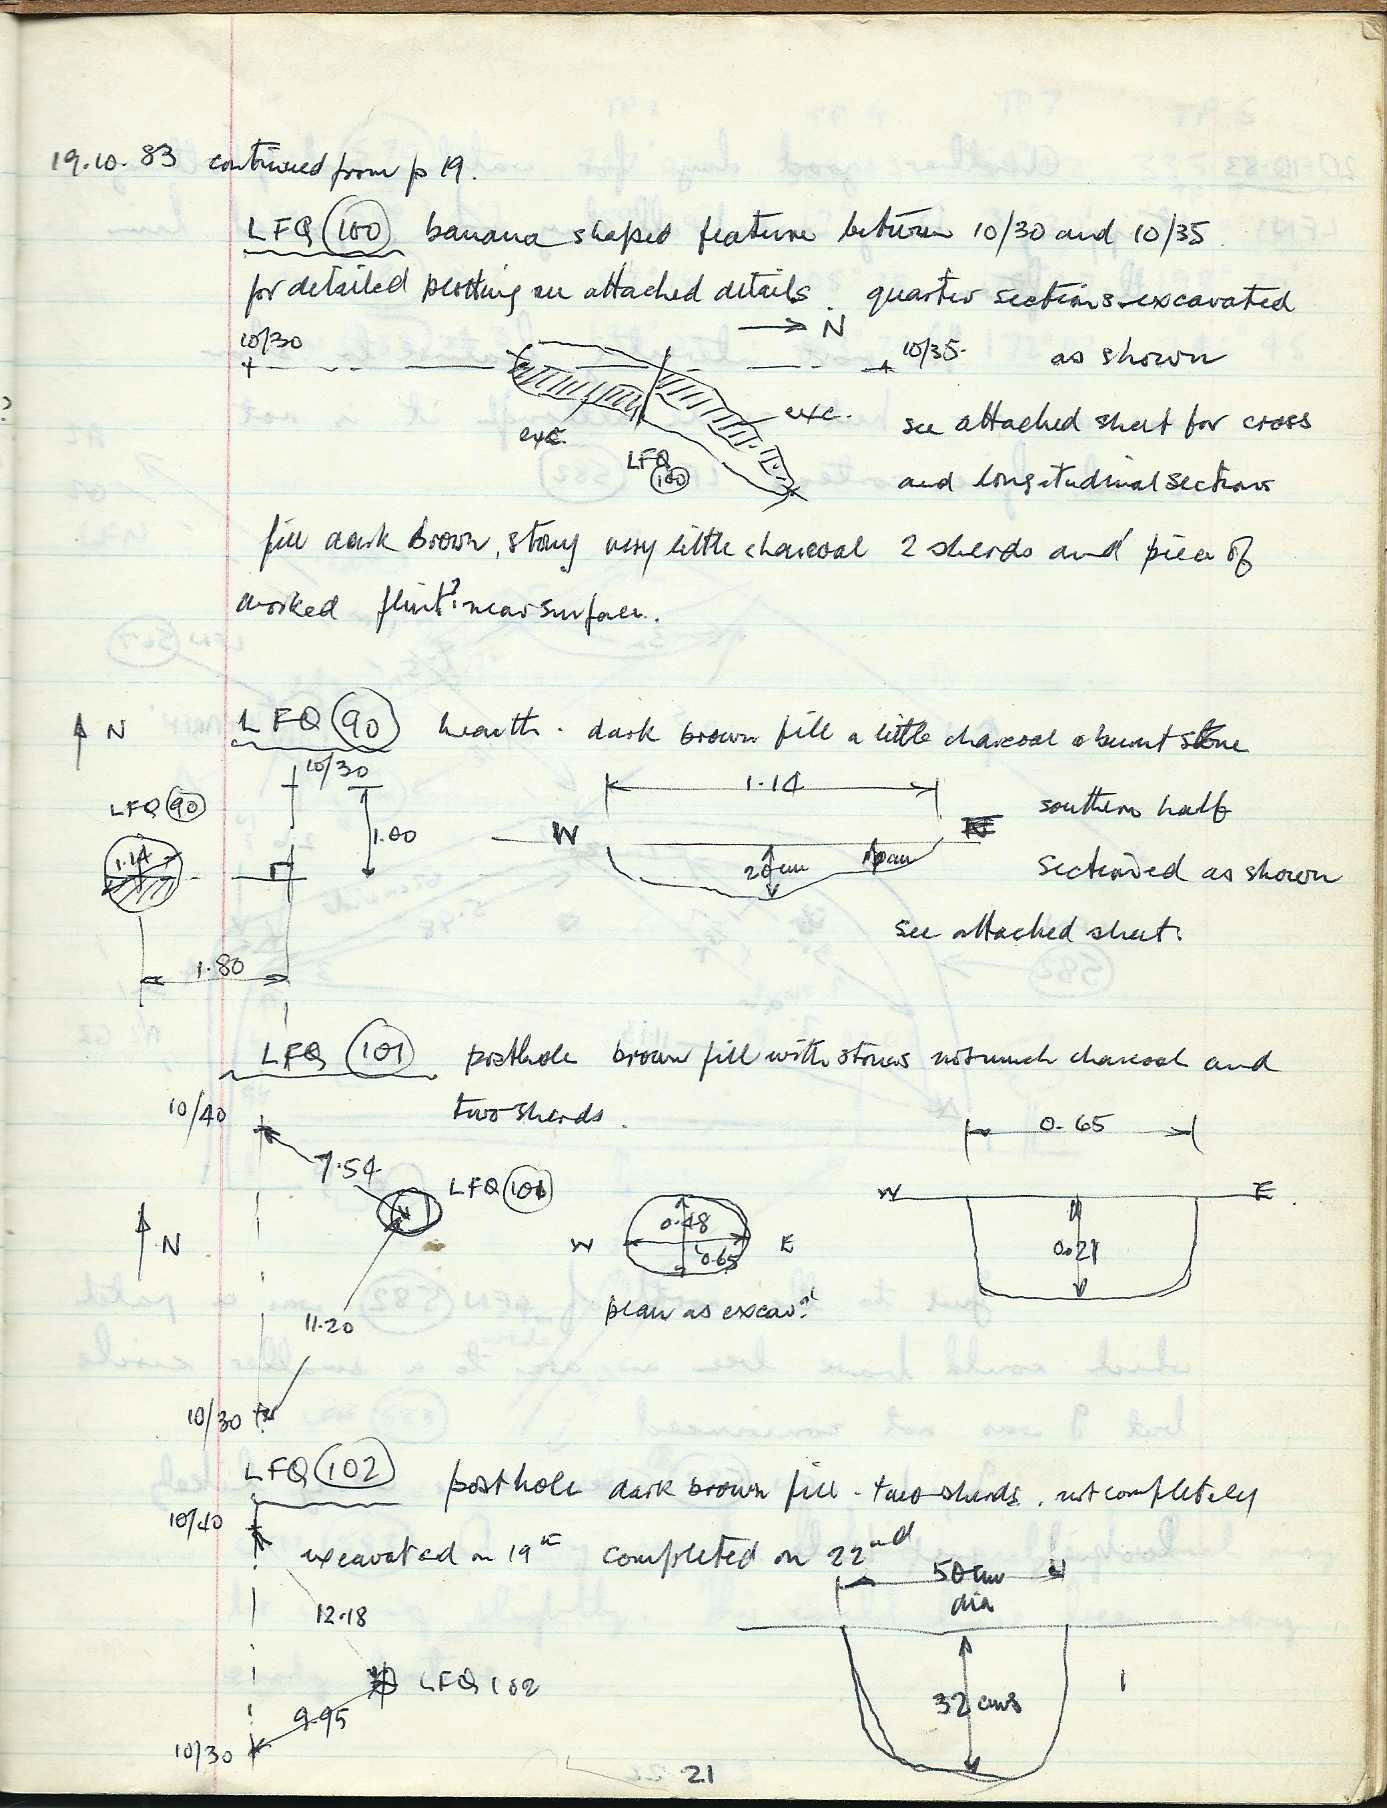 19.10.83 continued from p 19.
LFQ 100 banana shaped feature between 10/30 and 10/35
for detailed plotting see attached details. quarter sections excavated
→ N
10/30
10/35.
as shown
exc.
exc.
see attached sheet for cross
LFQ
100
and longitudinal sections
fill dark brown, stony very little charcoal 2 sherds and piece of
worked flint? near surface.
N
LFQ 90 hearth. dark brown fill a little charcoal & burnt stone
10/30
1.14
LFQ 90
1.00
southern half
W
E
1.14
20cm
10cm
sectioned as shown
see attached sheet.
1.80
LFQ 101 posthole brown fill with stones not much charcoal and
two sherds.
10/40
0.65
7.54
LFQ 101
W
E
N
W
0.48
0.65
E
0.21
plan as excav.
11.20
10/30
LFQ 102 posthole dark brown fill - two sherds. not completely
10/40
excavated on 19th completed on 22nd
50 cm
dia
12.18
LFQ 102
32 cms
9.95
10/30
21